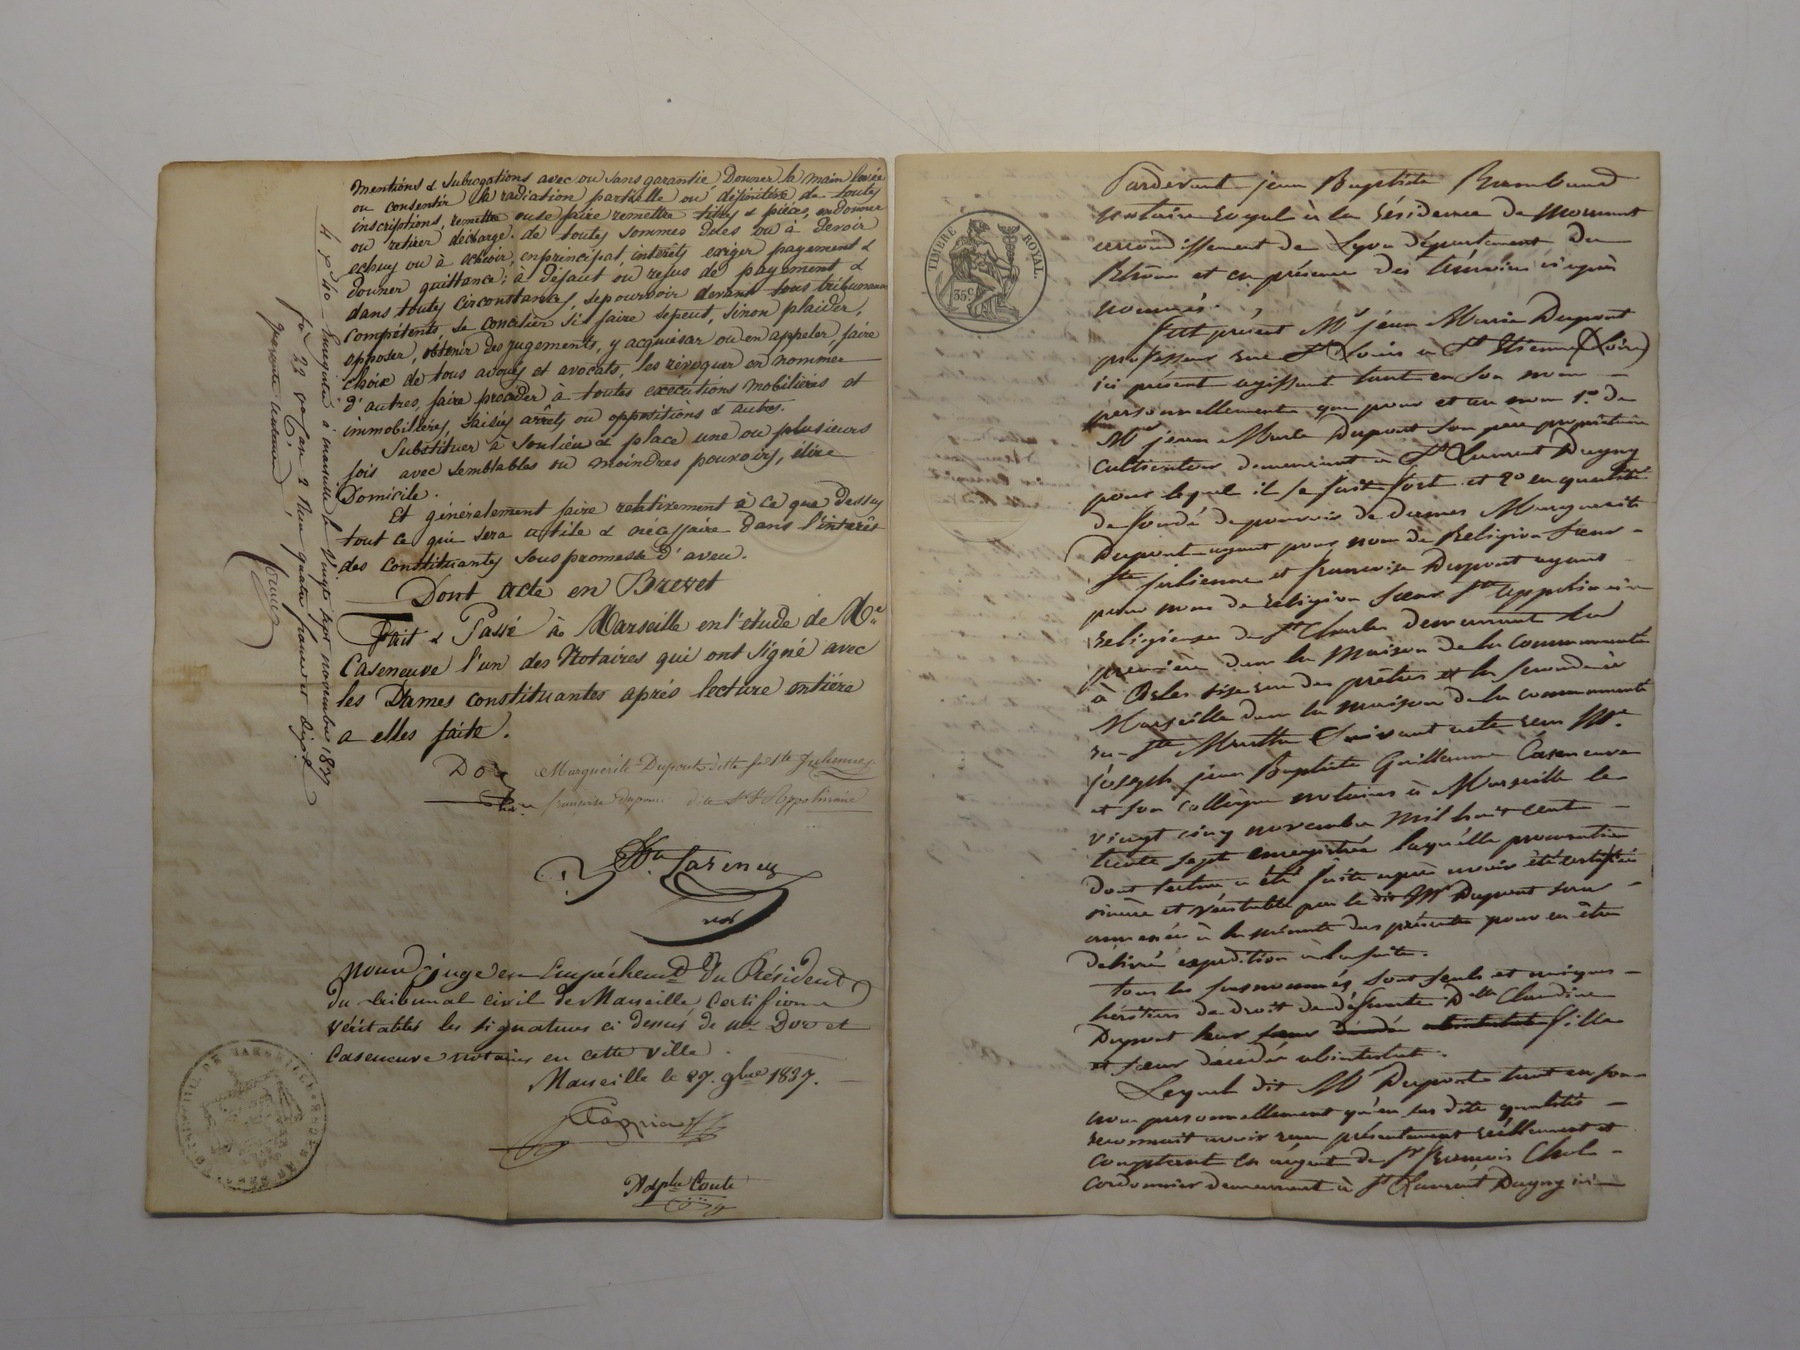 mentions & subrogations avec ou sans garantie, Donner la main levée
ou consentir la radiation partielle ou définitive de toutes
inscriptions, remettre ou se faire remettre titres & pièces, en donner
ou retirer décharge. de toutes sommes dûes ou à devoir
echus ou à echoir, en principal, intérêts exiger payement &
donner quittance; à défaut ou refus de payement &
dans toutes circonstances, se pourvoir devant tous tribunaux
compétents se concilier s'il faire se peut, sinon plaider,
opposer, obtenir des jugements, y acquiescer ou en appeler, faire
choix de tous avoués et avocats, les révoquer en nommer
d'autres, faire procéder à toutes exécutions mobilières et
immobilières, saisies arrêts ou oppositions & autres.
Substituer à son lieu & place une ou plusieurs
fois avec semblables ou moindres pouvoirs, élire
Domicile.
Et généralement faire relativement à ce que dessus
tout ce que sera utile & nécessaire dans l'intérêt
des constituantes sous promesse d'aveu.
Dont acte en Brevet
Fait & Passé à Marseille en l'étude de Me
Caseneuve l'un des Notaires qui ont signé avec
les Dames constituantes après lecture entière
a elles faite.
Marguerite Dupont ditte sr Ste Julienne
françoise dupont dite Sr St Appolinaire
Nous juge en Empêchement Du Président
Du tribunal civil de Marseille Certifions
véritables les signatures ci dessus de Mes Dor et
Caseneuve notaires en cette ville.
Marseille le 27. 9bre 1837.
Enregistré à marseille le Vingt sept novembre 1837
TIMBRE ROYAL.
35 c
Pardevant jean Baptiste Rambaud
notaire royal à la résidence de Mornant
arrondissement de Lyon département du
Rhône et en présence des témoins ci après
nommés.
fut présent Mr jean Marie Dupont
professeur rue St Louis à St Etienne (Loire)
ici présent agissant tant en son nom
personnellement que pour et au nom 1º de
Mr jean Marie Dupont son père propriétaire
cultivateur demeurant à St Laurent Dagny
pour lequel il se fait fort et 2º en qualité
de fondé de pouvoir de dames Marguerite
Dupont ayant pour nom de Religion Sœur
Ste Julienne et françoise Dupont ayant
pour nom de religion sœur St Appolinaire
Religieuses de St Charles demeurant la
première dans la Maison de la Communauté
à sise rue des prêtres et la seconde à
Marseille dans la maison de la communauté
rue Ste Marthe suivant acte reçu Me
joseph jean Baptiste Guillaume Caseneuve
et son collègue notaires à Marseille le
vingt cinq novembre mil huit cent
trente sept enregistrée laquelle procuration
dont lecture a été faite après avoir été certifiée
sincère et véritable par le dit Mr Dupont sera
annexée à la minute des présentes pour en être
délivré expédition à la suite.
tous les susnommés, sont seuls et uniques
héritiers de droit de défunte Dlle Claudine
Dupont leur fille
et sœur décédée abintestat.
Lequel dit Mr Dupont tant en son
nom personnellement qu'en ses dites qualités
reconnait avoir reçu présentement réellement et
comptant en argent de Sr françois Chol
cordonnier demeurant à St Laurent Dagny ici